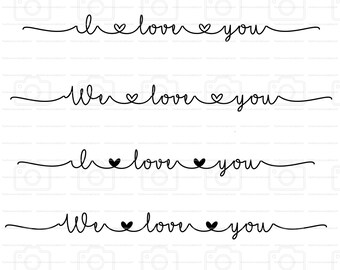 I love you
We love you
I love you
We love you